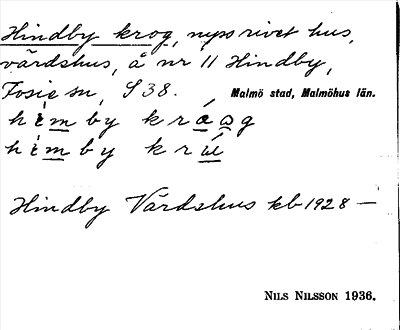 Hindby krog, nyss rivet hus,
värdshus, å nr 11 Hindby,
Fosie sn, S 38. Malmö stad, Malmöhus län.
hìmby kráog
hìmby krú
Hindby Värdshus kb 1928 —
NILS NILSSON 1936.